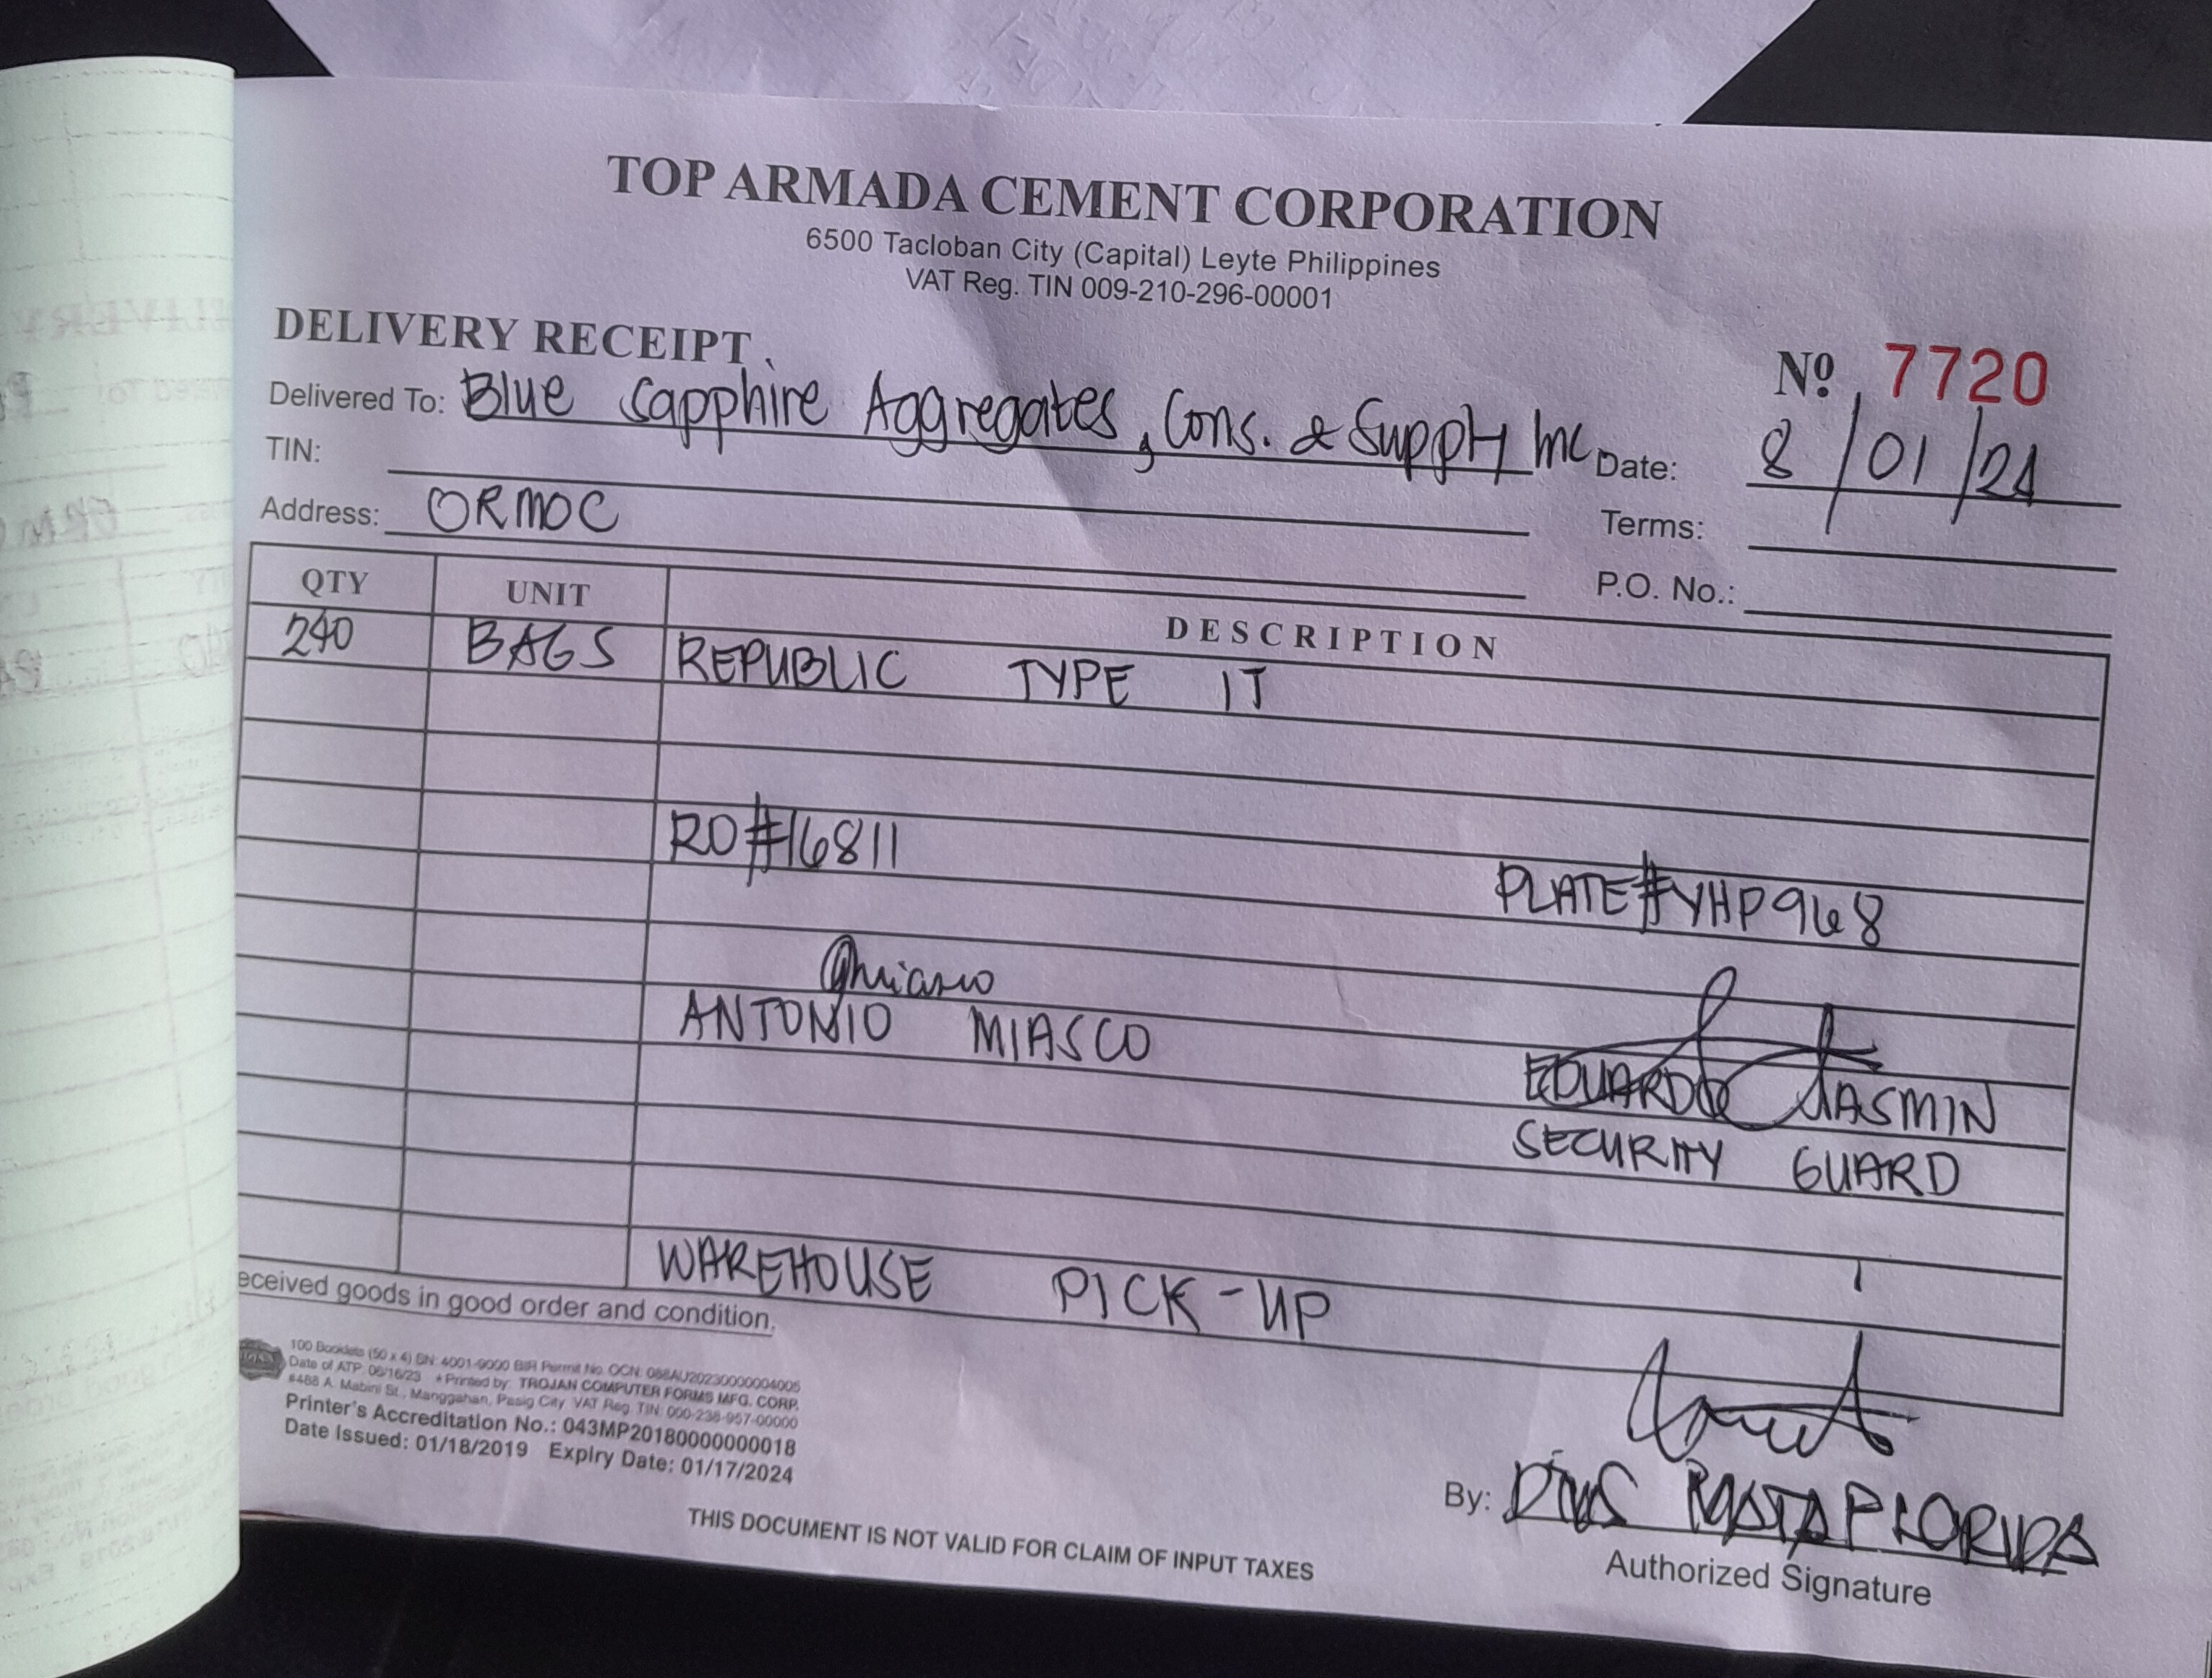 TOP ARMADA CEMENT CORPORATION
6500 Tacloban City (Capital) Leyte Philippines
VAT Reg. TIN 009-210-296-00001
DELIVERY RECEIPT
Nº 7720
Delivered To: Blue Sapphire Aggregates, Cons. & Supply Inc
Date: 8/01/24
TIN:
Terms:
Address: ORMOC
P.O. No.:
QTY UNIT DESCRIPTION
240 BAGS REPUBLIC TYPE IT
RO#16811
PLATE#YHP968
ANTONIO MIASCO
EDUARDO JASMIN
SECURITY GUARD
WAREHOUSE PICK-UP
eceived goods in good order and condition.
100 Booklets (50 x 4) SN: 4001-9000 BIR Permit No. OCN: 088AU20230000004005
Date of ATP: 06/16/23 *Printed by: TROJAN COMPUTER FORMS MFG. CORP.
#488 A. Mabini St., Manggahan, Pasig City VAT Reg. TIN: 000-238-957-00000
Printer's Accreditation No.: 043MP20180000000018
Date Issued: 01/18/2019 Expiry Date: 01/17/2024
THIS DOCUMENT IS NOT VALID FOR CLAIM OF INPUT TAXES
By:
Authorized Signature